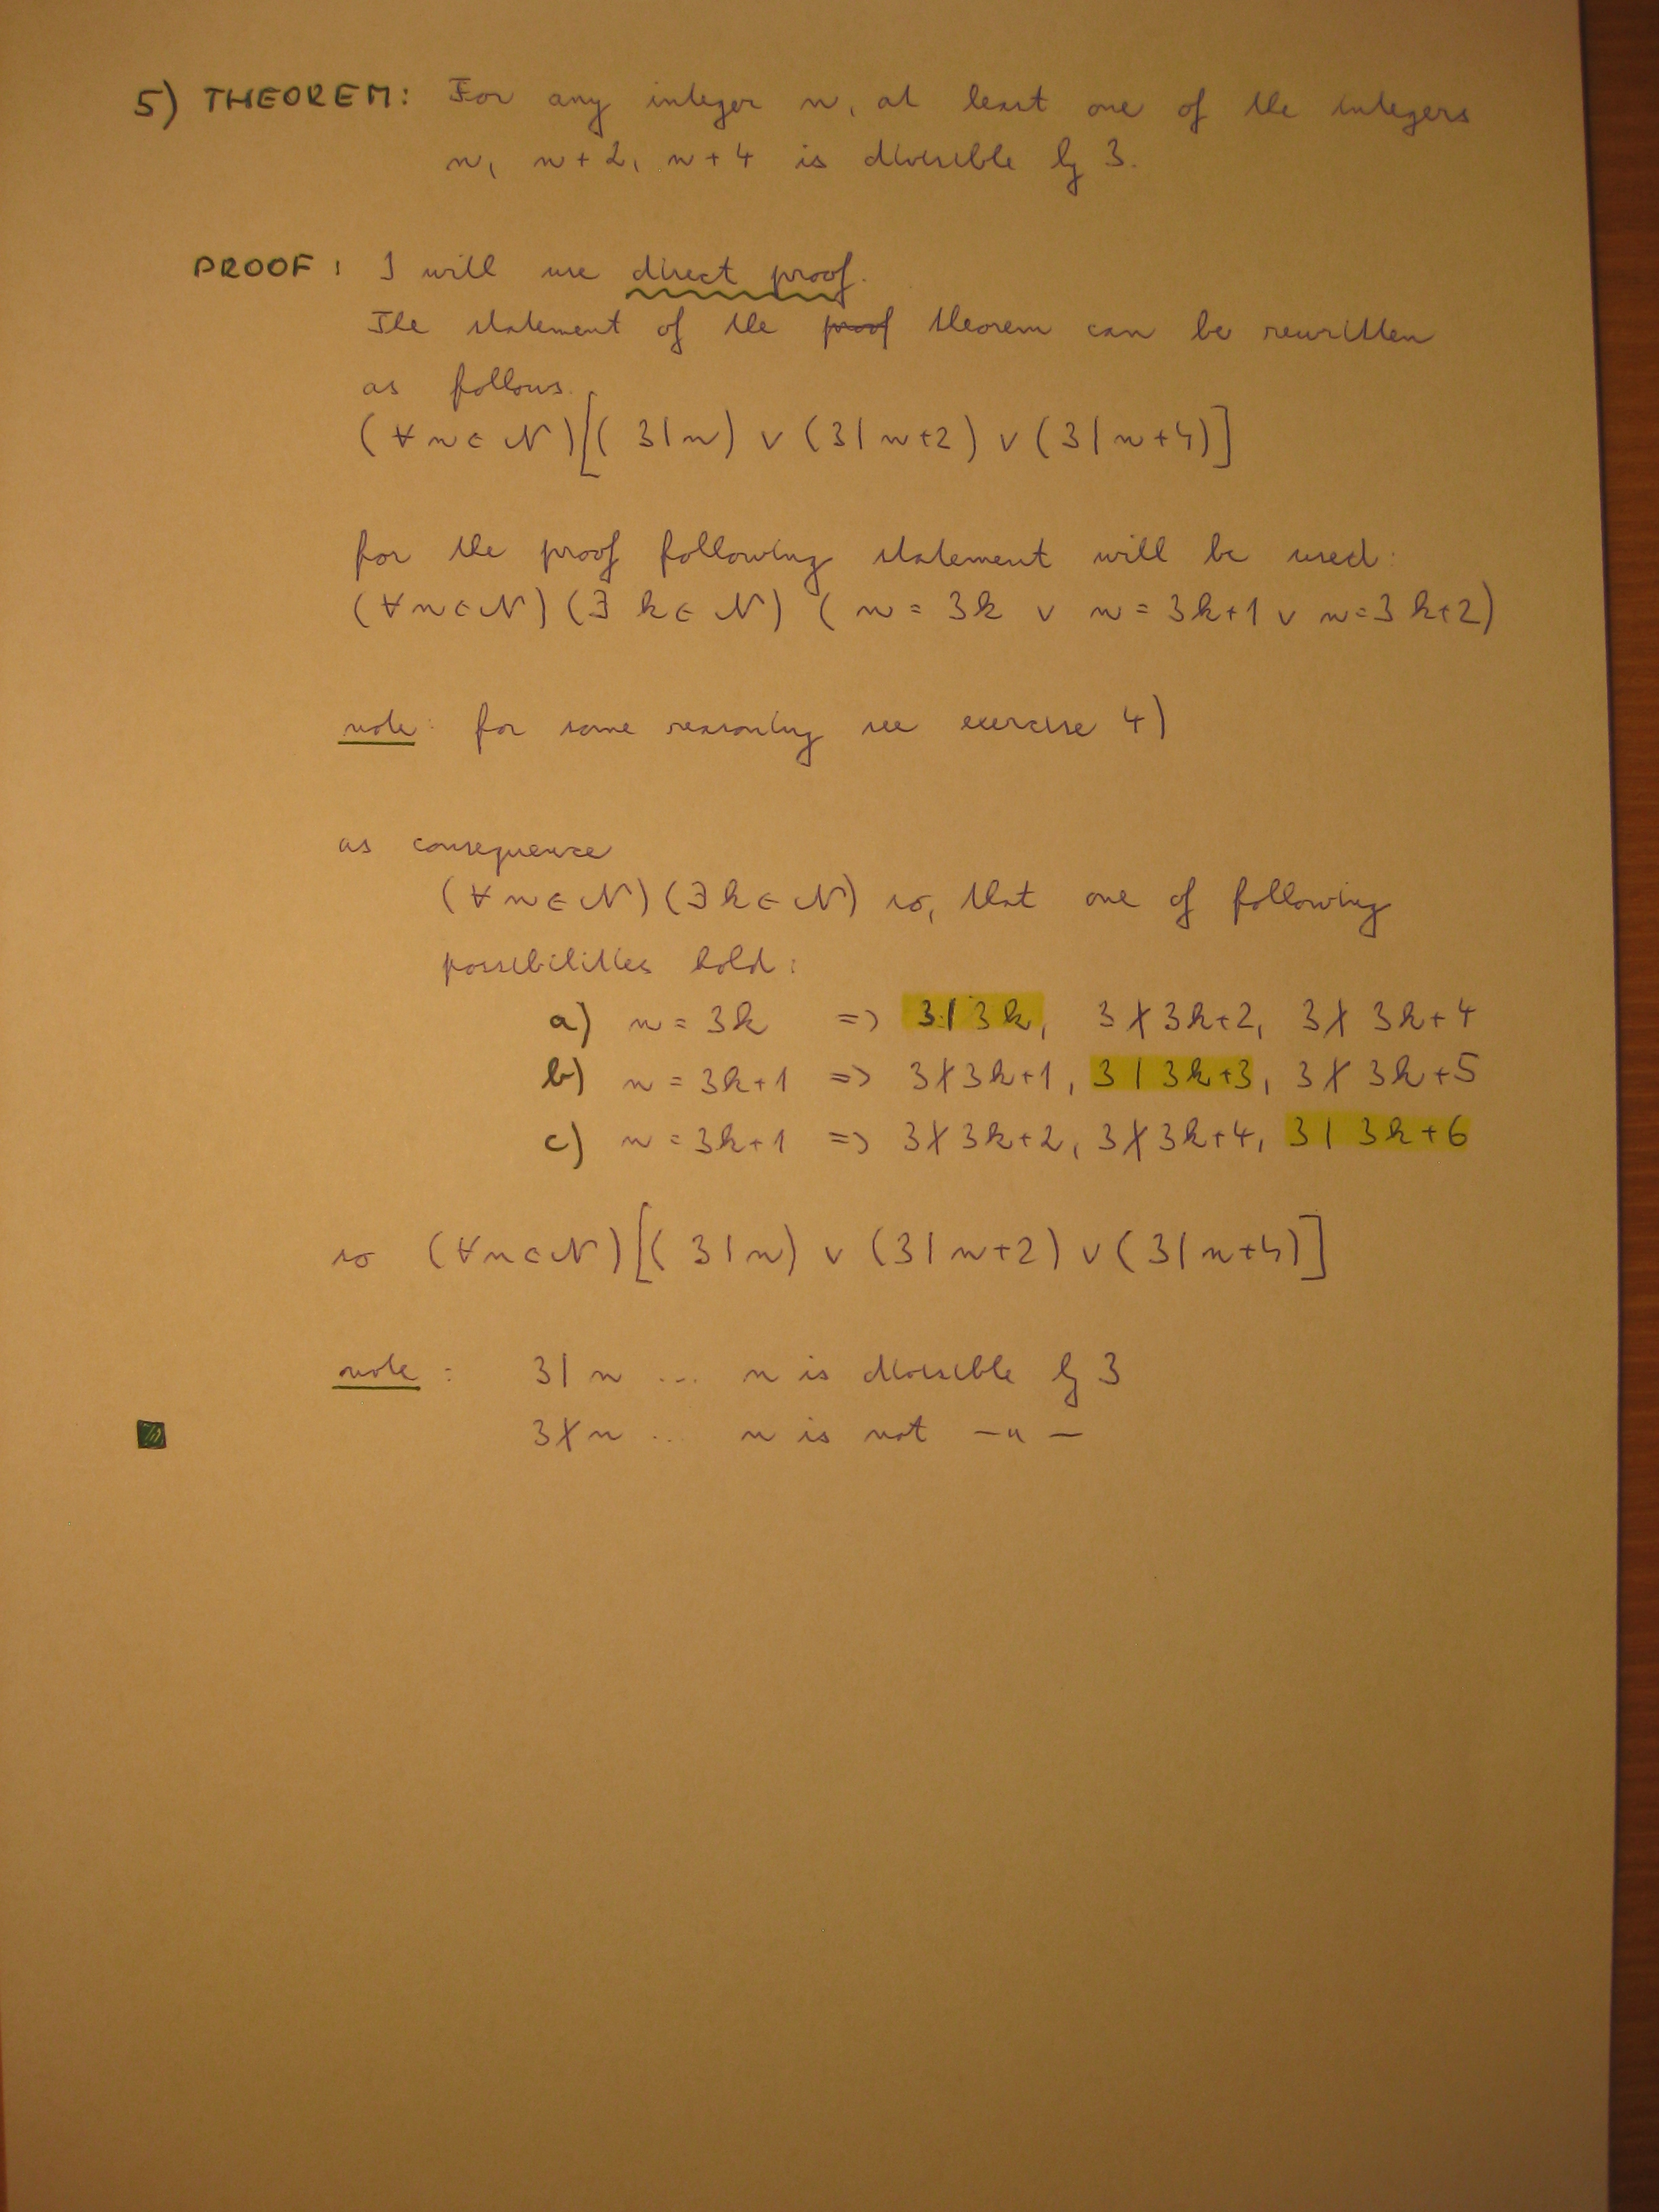 5) THEOREM: For any integer n, at least one of the integers
n, n+2, n+4 is divisible by 3.
PROOF: I will use direct proof.
The statement of the proof theorem can be rewritten
as follows.
(∀n∈N)[(3|n) ∨ (3|n+2) ∨ (3|n+4)]
for the proof following statement will be used:
(∀n∈N)(∃k∈N) (n = 3k ∨ n = 3k+1 ∨ n=3k+2)
note: for some reasoning see exercise 4)
as consequence
(∀n∈N)(∃k∈N) so, that one of following
possibilities hold:
a) n = 3k => 3|3k, 3∤3k+2, 3∤3k+4
b) n = 3k+1 => 3∤3k+1, 3|3k+3, 3∤3k+5
c) n = 3k+1 => 3∤3k+2, 3∤3k+4, 3|3k+6
so (∀n∈N)[(3|n) ∨ (3|n+2) ∨ (3|n+4)]
note: 3|n ... n is divisible by 3
3∤n .. n is not —"—